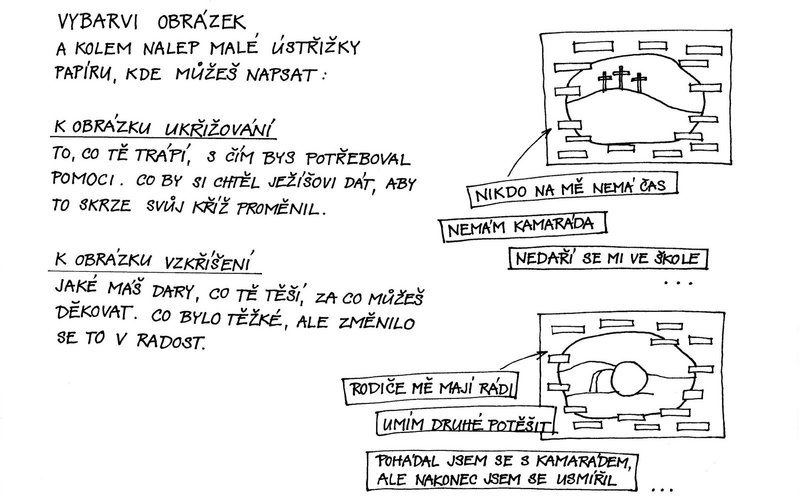 VYBARVI OBRÁZEK
A KOLEM NALEP MALÉ ÚSTŘIŽKY
PAPÍRU, KDE MŮŽEŠ NAPSAT:
K OBRÁZKU UKŘIŽOVÁNÍ
TO, CO TĚ TRÁPÍ, S ČÍM BYS POTŘEBOVAL
POMOCI. CO BY SI CHTĚL JEŽÍŠOVI DÁT, ABY
TO SKRZE SVŮJ KŘÍŽ PROMĚNIL.
NIKDO NA MĚ NEMÁ ČAS
NEMÁM KAMARÁDA
NEDAŘÍ SE MI VE ŠKOLE
...
K OBRÁZKU VZKŘÍŠENÍ
JAKÉ MÁŠ DARY, CO TĚ TĚŠÍ, ZA CO MŮŽEŠ
DĚKOVAT. CO BYLO TĚŽKÉ, ALE ZMĚNILO
SE TO V RADOST.
RODIČE MĚ MAJÍ RÁDI
UMÍM DRUHÉ POTĚŠIT
POHÁDAL JSEM SE S KAMARÁDEM,
ALE NAKONEC JSEM SE USMÍŘIL
...